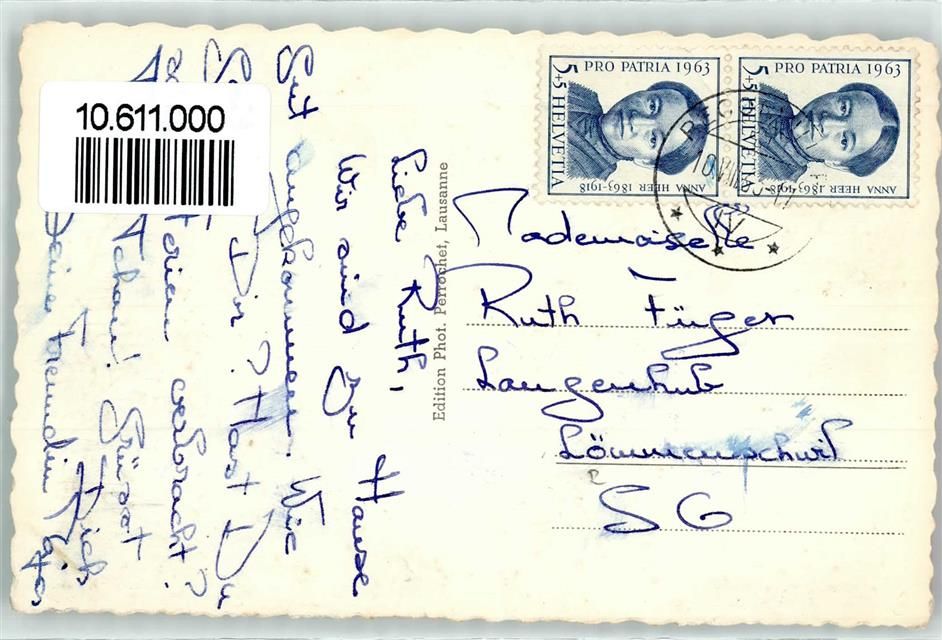 10.611.000
PRO PATRIA 1963
5+5 HELVETIA
ANNA HEER 1863-1918
PRO PATRIA 1963
5+5 HELVETIA
ANNA HEER 1863-1918
Liebe Ruth,
Wir sind zu Hause
Gut angekommen. Wie
Dir? Hast Du
Ferien verbracht?
Schau! Grüsst Dich
Deine Freundin
Edition Phot. Perrochet, Lausanne
Mademoiselle
Ruth Füger
Langenhub
Lömmenschwil
SG